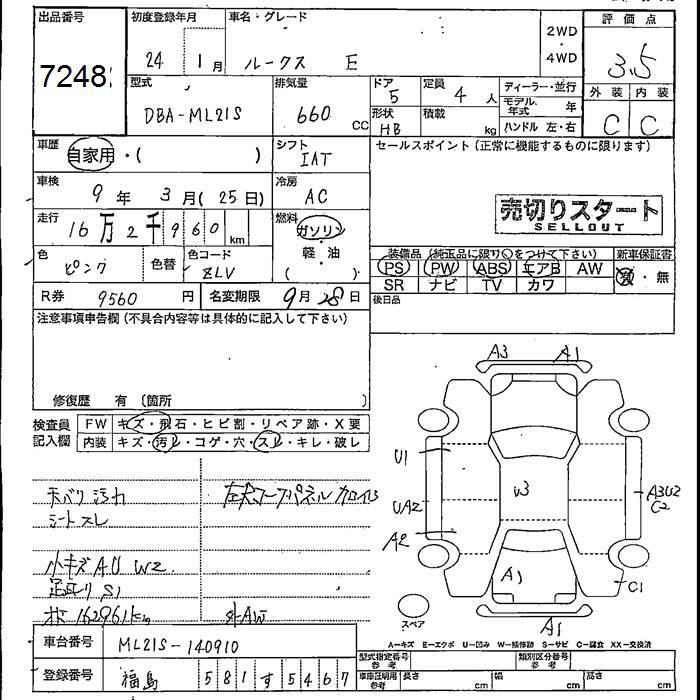 出品番号
7248
初度登録年月 24 1月
車名・グレード ルークス E
2WD・4WD
評価点 3.5
型式 DBA-ML21S
排気量 660 CC
ドア 5
形状 HB
定員 4 人
積載 kg
ディーラー・並行
モデル年式 年
ハンドル 左・右
外装 C
内装 C
車歴 自家用・( )
シフト IAT
セールスポイント (正常に機能するものに限ります)
車検 9年 3月(25日)
冷房 AC
売切りスタート
SELLOUT
走行 16万2千960km
燃料 ガソリン・軽・油 ( )
色 ピンク
色替
色コード ZLV
装備品 (純正品に限り○をつけて下さい)
新車保証書 有・無
PS PW ABS エアB AW
SR ナビ TV カワ
R券 9560 円
名変期限 9月28日
後日品
注意事項申告欄 (不具合内容等は具体的に記入して下さい)
修復歴 有 (箇所 )
検査員記入欄
FW キズ・飛石・ヒビ割・リペア跡・X要
内装 キズ・汚れ・コゲ・穴・スレ・キレ・破レ
天バリ汚れ
シートスレ
小キズ AU W2
足廻り S1
メーター 162961km
社外AW
A3 A1
U1
UA2
A2
W3
A3U2
C2
A1
C1
A1
スペア
A-キズ E-エクボ U-凹み W-補修跡 S-サビ C-腐食 XX-交換済
車台番号 ML21S-140910
型式指定番号 参考
類別区分番号 参考
登録番号 福島 581す5467
車庫証明用 参考 長さ cm 幅 cm 高さ cm